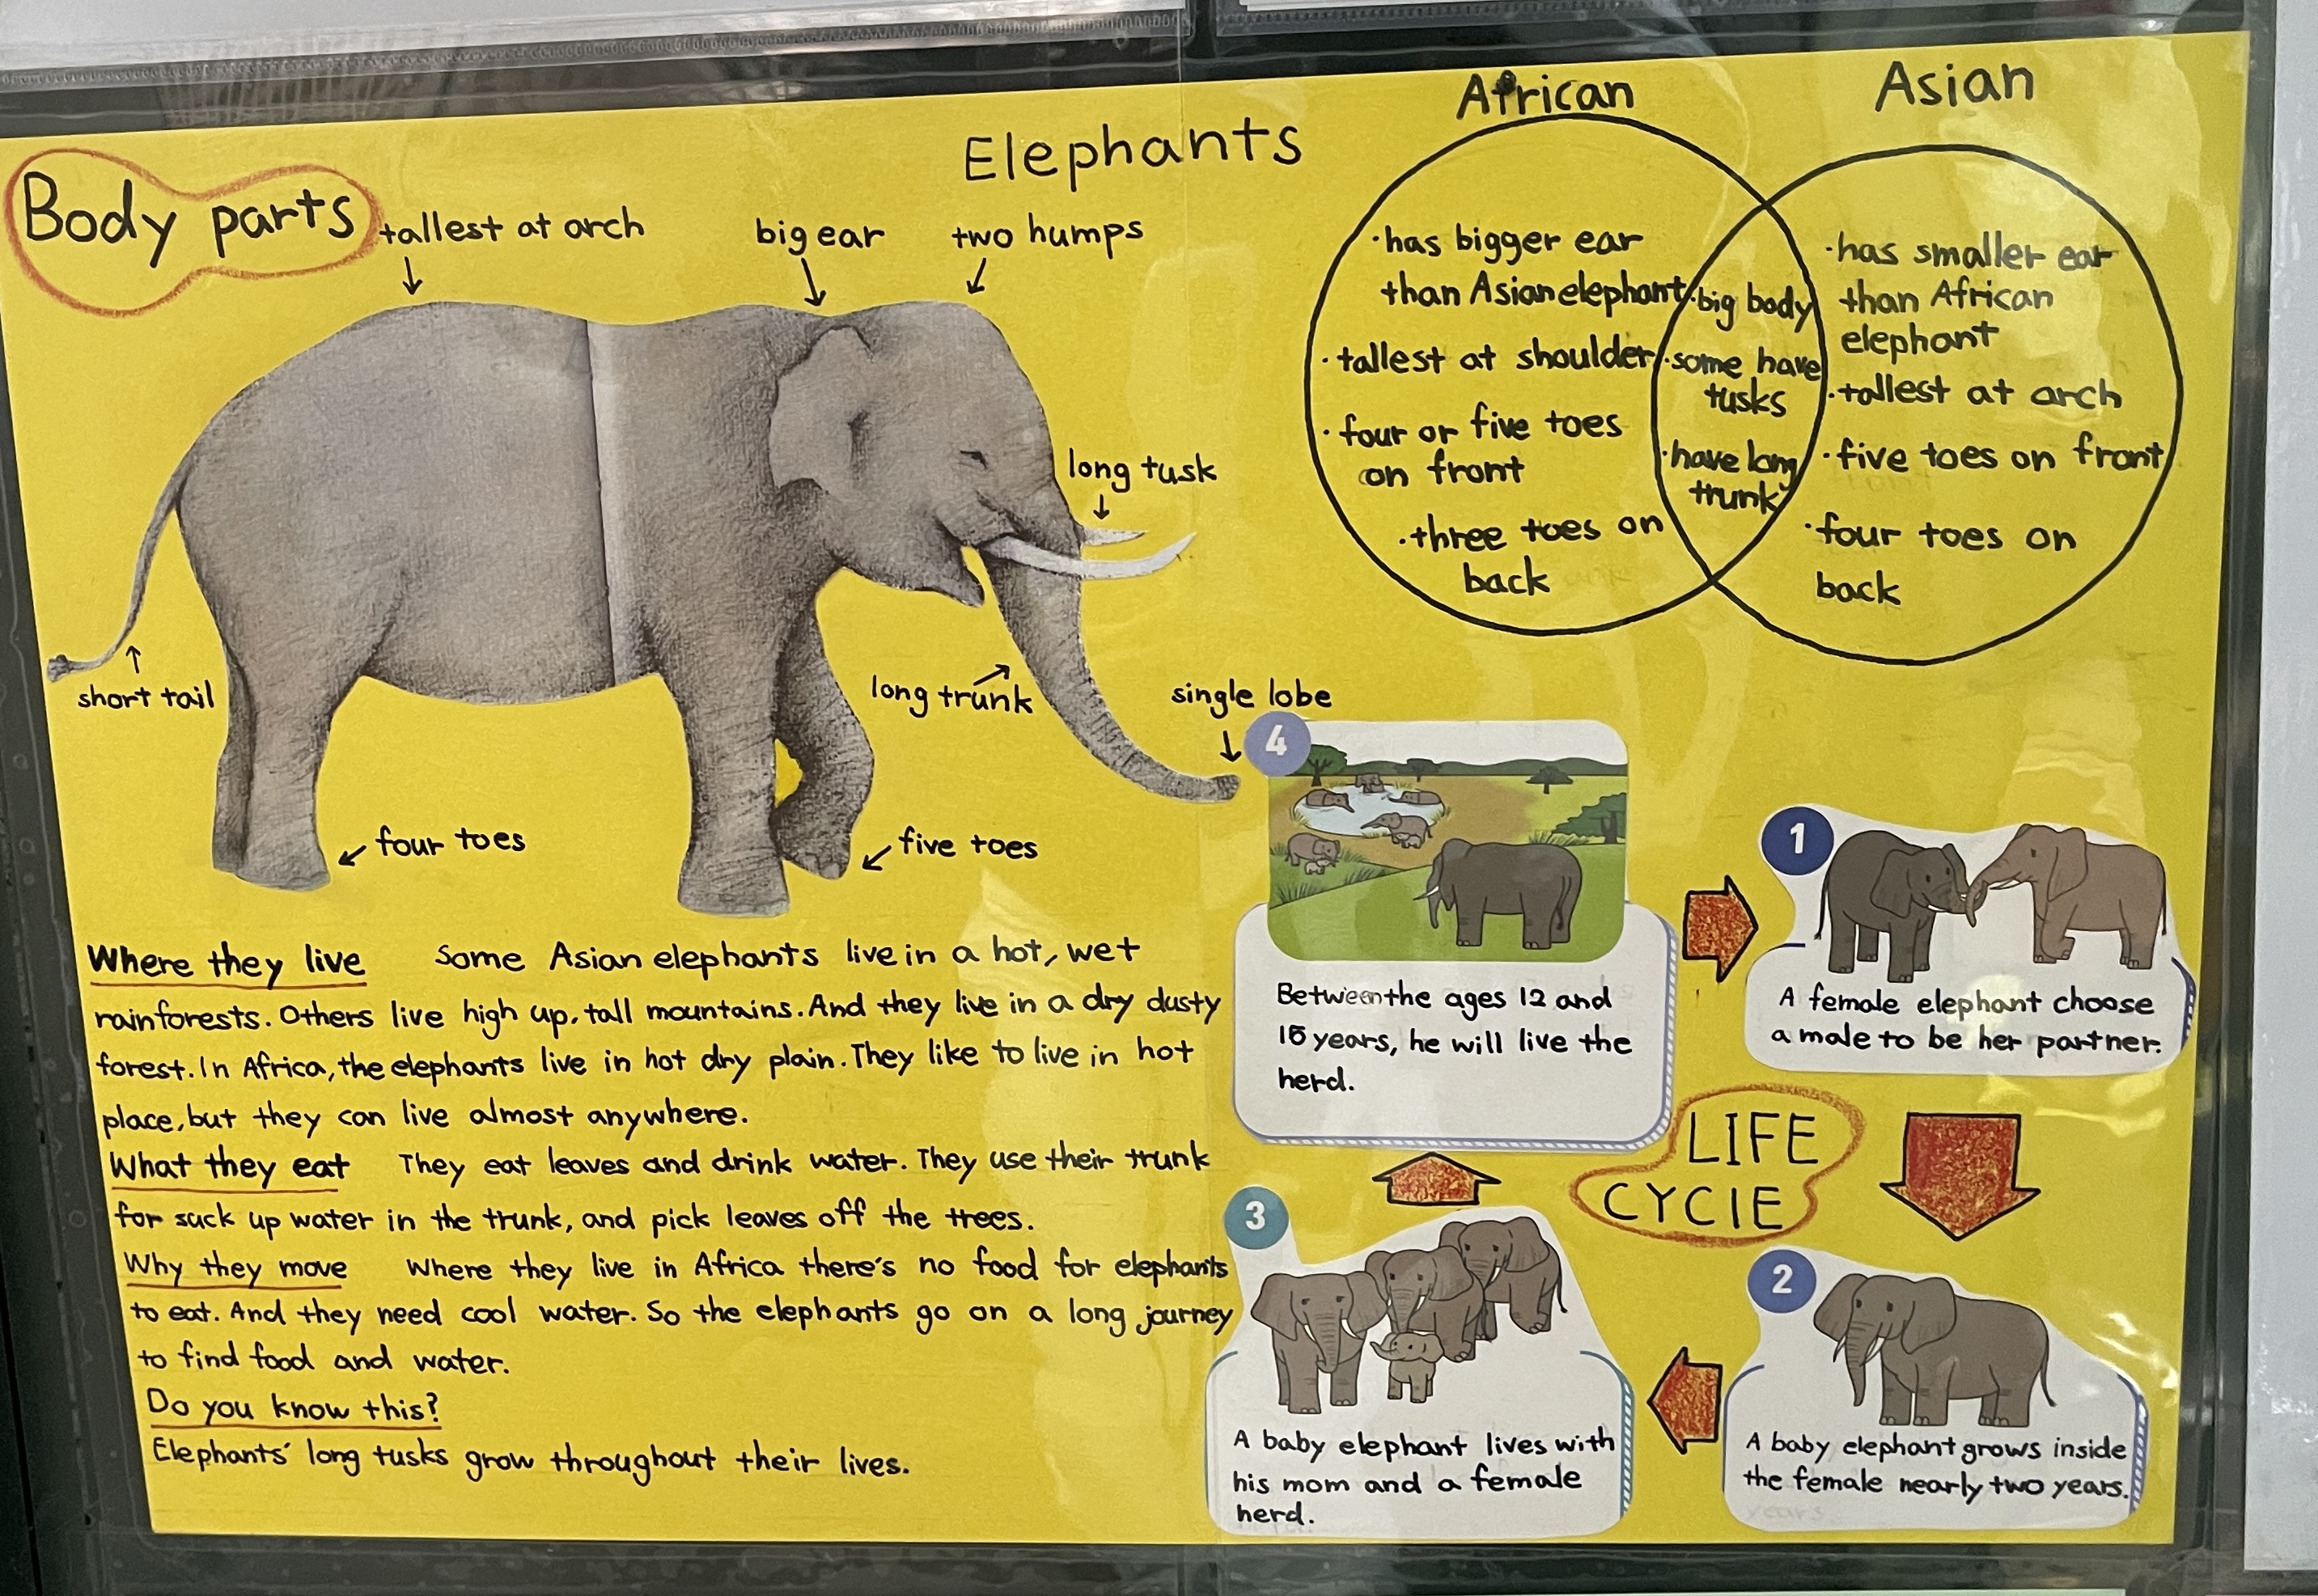 Elephants
Body parts
tallest at arch
big ear
two humps
long tusk
long trunk
single lobe
short tail
four toes
five toes
African
·has bigger ear
than Asian elephant
·tallest at shoulder
·four or five toes
on front
·three toes on
back
·big body
·some have
tusks
·have long
trunk
Asian
·has smaller ear
than African
elephant
·tallest at arch
·five toes on front
·four toes on
back
Where they live Some Asian elephants live in a hot, wet
rainforests. Others live high up, tall mountains. And they live in a dry dusty
forest. In Africa, the elephants live in hot dry plain. They like to live in hot
place, but they can live almost anywhere.
What they eat They eat leaves and drink water. They use their trunk
for suck up water in the trunk, and pick leaves off the trees.
Why they move Where they live in Africa there's no food for elephants
to eat. And they need cool water. So the elephants go on a long journey
to find food and water.
Do you know this?
Elephants' long tusks grow throughout their lives.
LIFE
CYCIE
1
A female elephant choose
a male to be her partner.
2
A baby elephant grows inside
the female nearly two years.
3
A baby elephant lives with
his mom and a female
herd.
4
Between the ages 12 and
15 years, he will live the
herd.